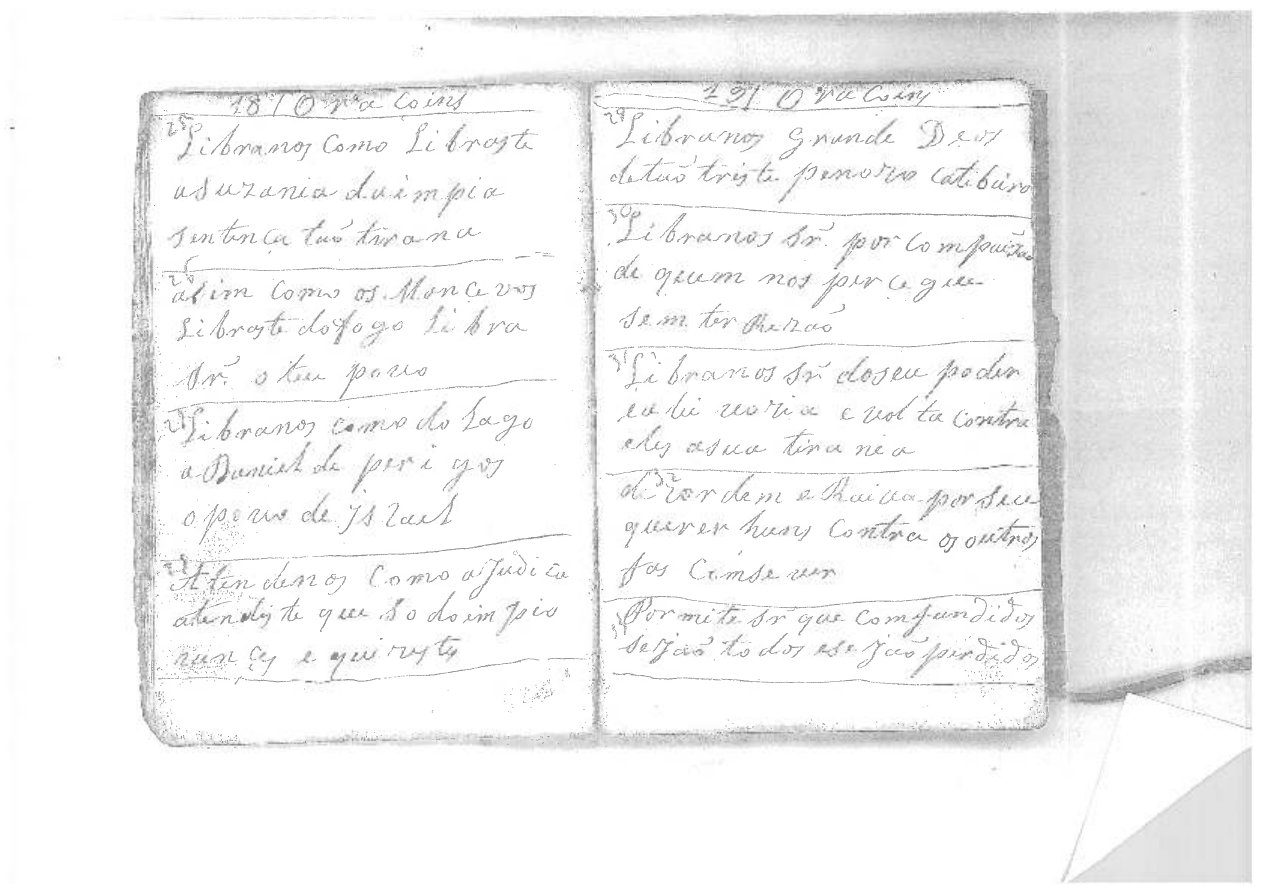 18 / Oracoins
25 Libranos Como Libraste
asuzania daimpia
sentença taõ tirana
26 asim como os Moncevos
Libraste dofogo Libra
Sr̃. o teu povo
27 Libranos como do Lago
a Daniel de perigos
o povo de jsrael
28 Atendenos Como a Judica
atendeste que so do impio
e
19 / Oracoins
29 Libranos grande Deos
detaõ triste penozo Catibeiro
30 Libranos Sr̃. por Compaixaõ
de quem nos percegue
sem ter Rezaõ
31 Libranos Sr̃ doseu poder
e volta contra
eles asua tirania
32 dizordem e Raiva por seu
querer huns Contra os outros
fas
Permite Sr̃ que Comfundidos
sejaõ todos esejaõ perdidos